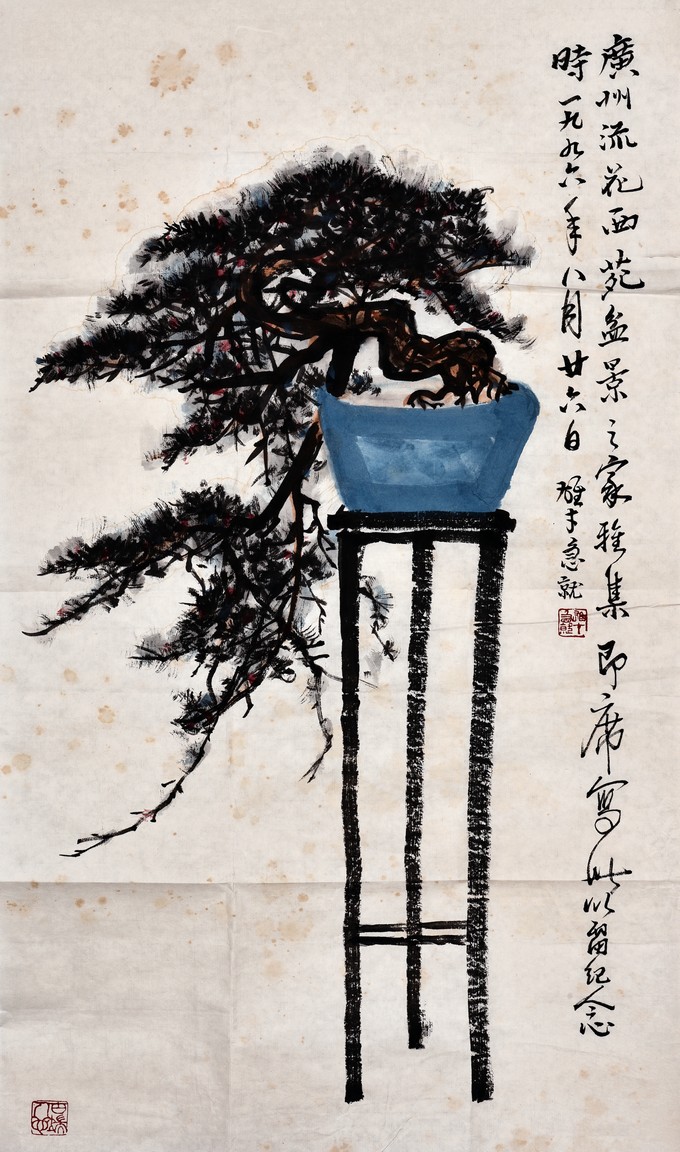 廣州流花西苑盆景之家雅集即席寫此以留紀念
時一九九六年八月廿六日
雄才急就